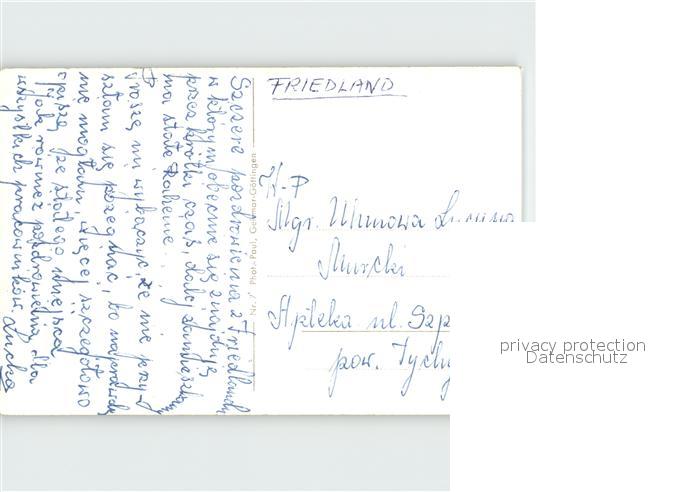 FRIEDLAND
Szczere pozdrowienia z Friedlandu
w którym obecnie się znajduję
przez krótki czas, dalej zamieszkam
na stałe
Proszę mi wybaczyć, że nie przy-
szłam się pożegnać, bo naprawdę
nie mogłam, więcej szczegółowo
opiszę ze stałego miejsca
jak również pozdrowienia dla
wszystkich pracowników. Lucha
Nr. Phot-Paul, Geismar-Göttingen
K-P
Mgr.
Murcki
Apteka ul. Szp
pow. Tychy
privacy protection
Datenschutz